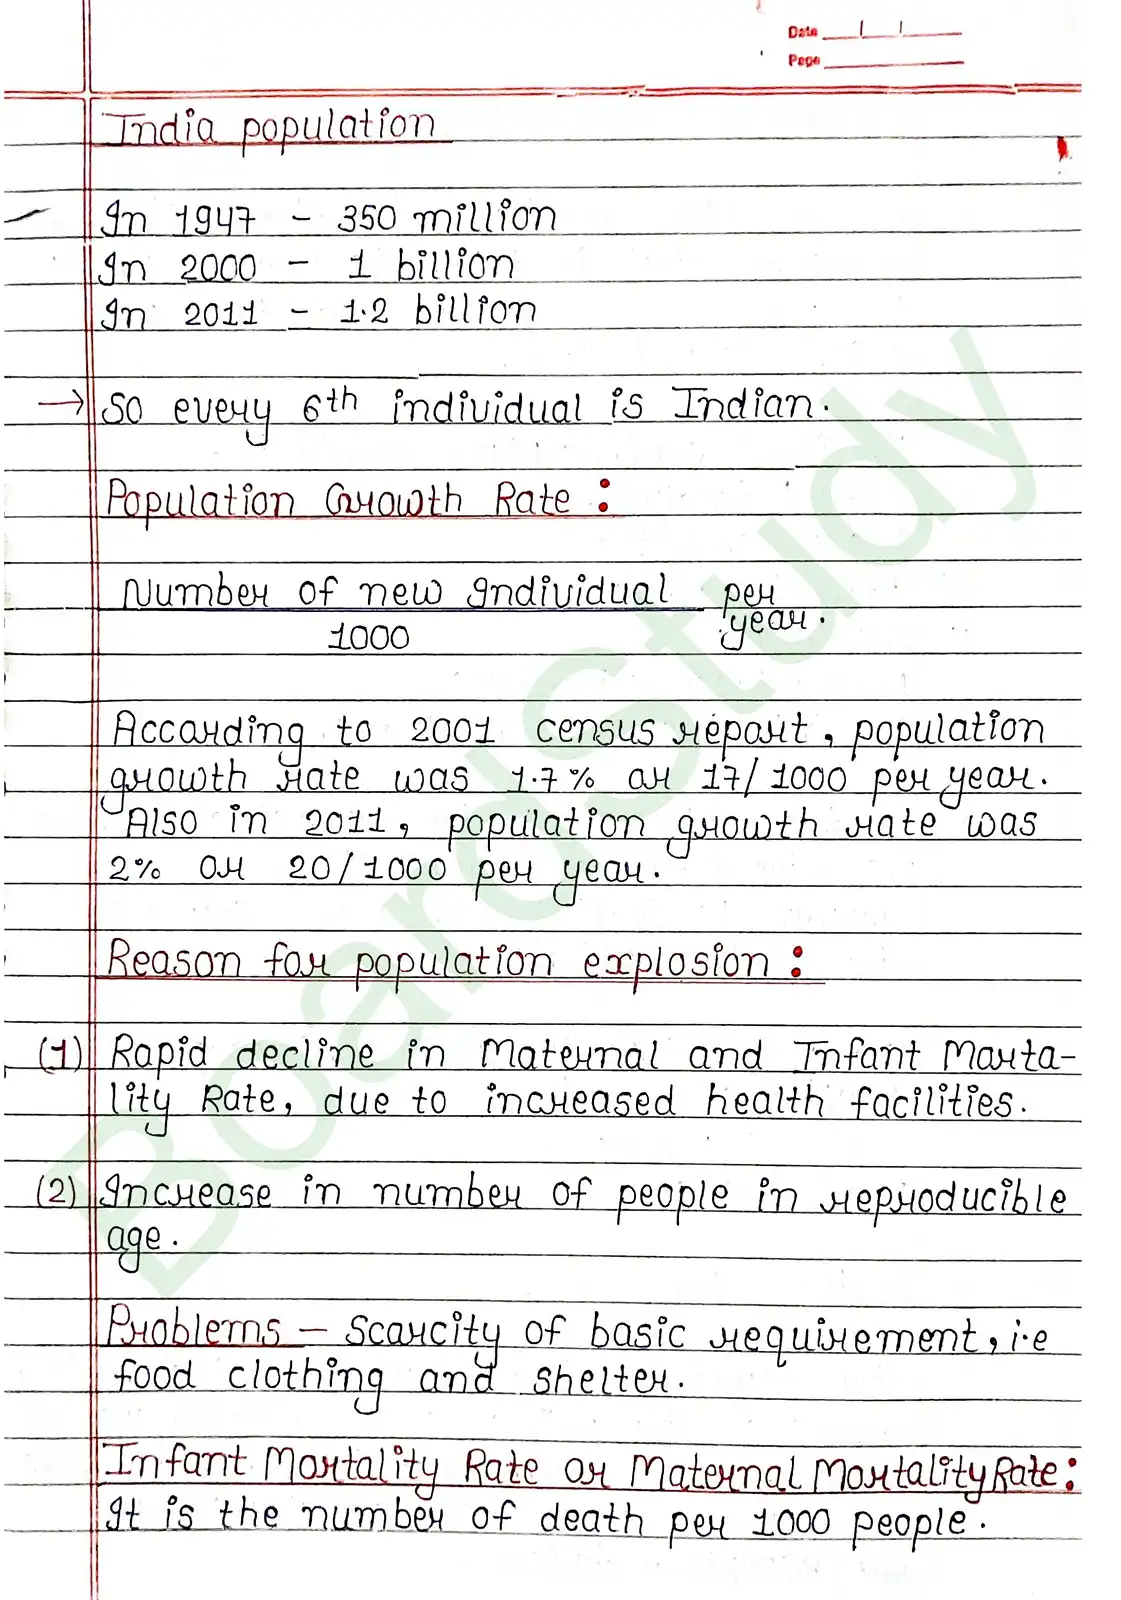 Date
Page
India population
In 1947 - 350 million
In 2000 - 1 billion
In 2011 - 1.2 billion
→ So every 6th individual is Indian.
Population Growth Rate :
Number of new Individual per
year.
1000
According to 2001 census report, population
growth rate was 1.7% or 17/1000 per year.
Also in 2011, population growth rate was
2% or 20/1000 per year.
Reason for population explosion :
(1) Rapid decline in Maternal and Infant Morta-
lity Rate, due to increased health facilities.
(2) Increase in number of people in reproducible
age.
Problems - Scarcity of basic requirement, i.e
food clothing and shelter.
Infant Mortality Rate or Maternal Mortality Rate:
It is the number of death per 1000 people.
BoardStudy